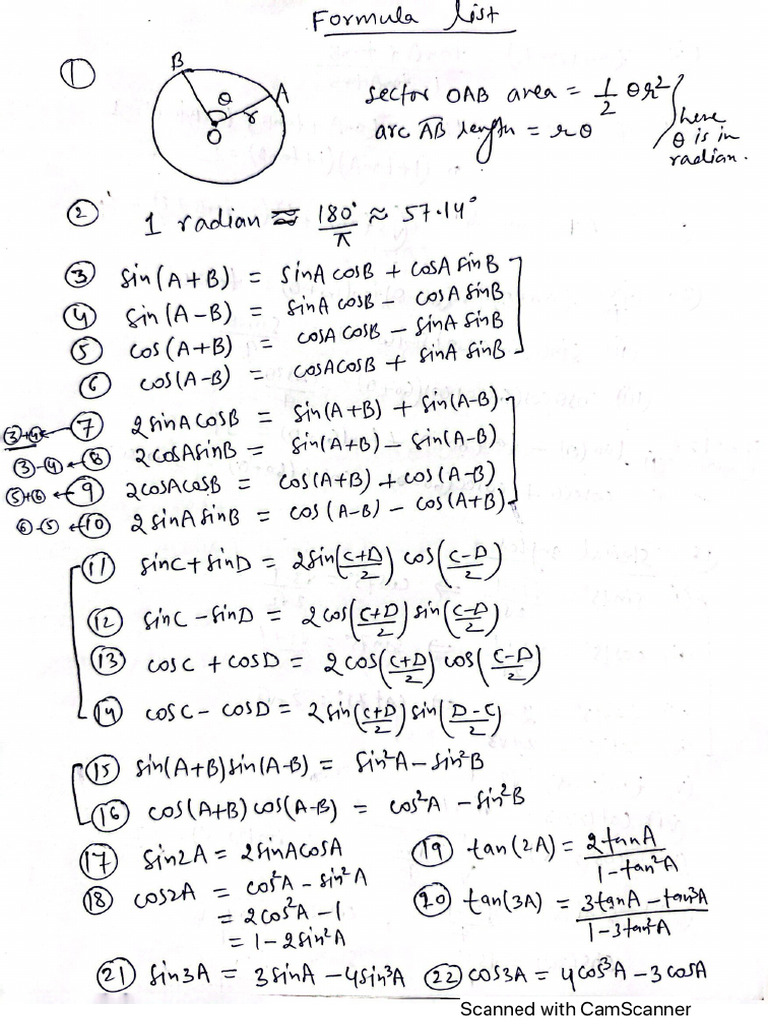 Formula list
① B A θ r O
sector OAB area = 1/2 θr²
arc AB length = rθ
here θ is in radian.
② 1 radian ≈ 180°/π ≈ 57.14°
③ sin(A+B) = sinA cosB + cosA sinB
④ sin(A-B) = sinA cosB - cosA sinB
⑤ cos(A+B) = cosA cosB - sinA sinB
⑥ cos(A-B) = cosAcosB + sinA sinB
③+④ ← ⑦ 2sinAcosB = sin(A+B) + sin(A-B)
③-④ ← ⑧ 2cosAsinB = sin(A+B) - sin(A-B)
⑤+⑥ ← ⑨ 2cosAcosB = cos(A+B) + cos(A-B)
⑥-⑤ ← ⑩ 2sinAsinB = cos(A-B) - cos(A+B)
⑪ sinC+sinD = 2sin((C+D)/2) cos((C-D)/2)
⑫ sinC-sinD = 2cos((C+D)/2) sin((C-D)/2)
⑬ cosC + cosD = 2cos((C+D)/2) cos((C-D)/2)
⑭ cosC - cosD = 2sin((C+D)/2) sin((D-C)/2)
⑮ sin(A+B)sin(A-B) = sin²A - sin²B
⑯ cos(A+B)cos(A-B) = cos²A - sin²B
⑰ sin2A = 2sinAcosA
⑱ cos2A = cos²A - sin²A
= 2cos²A - 1
= 1 - 2sin²A
⑲ tan(2A) = 2tanA/(1-tan²A)
⑳ tan(3A) = (3tanA - tan³A)/(1-3tan²A)
㉑ sin3A = 3sinA - 4sin³A
㉒ cos3A = 4cos³A - 3cosA
Scanned with CamScanner